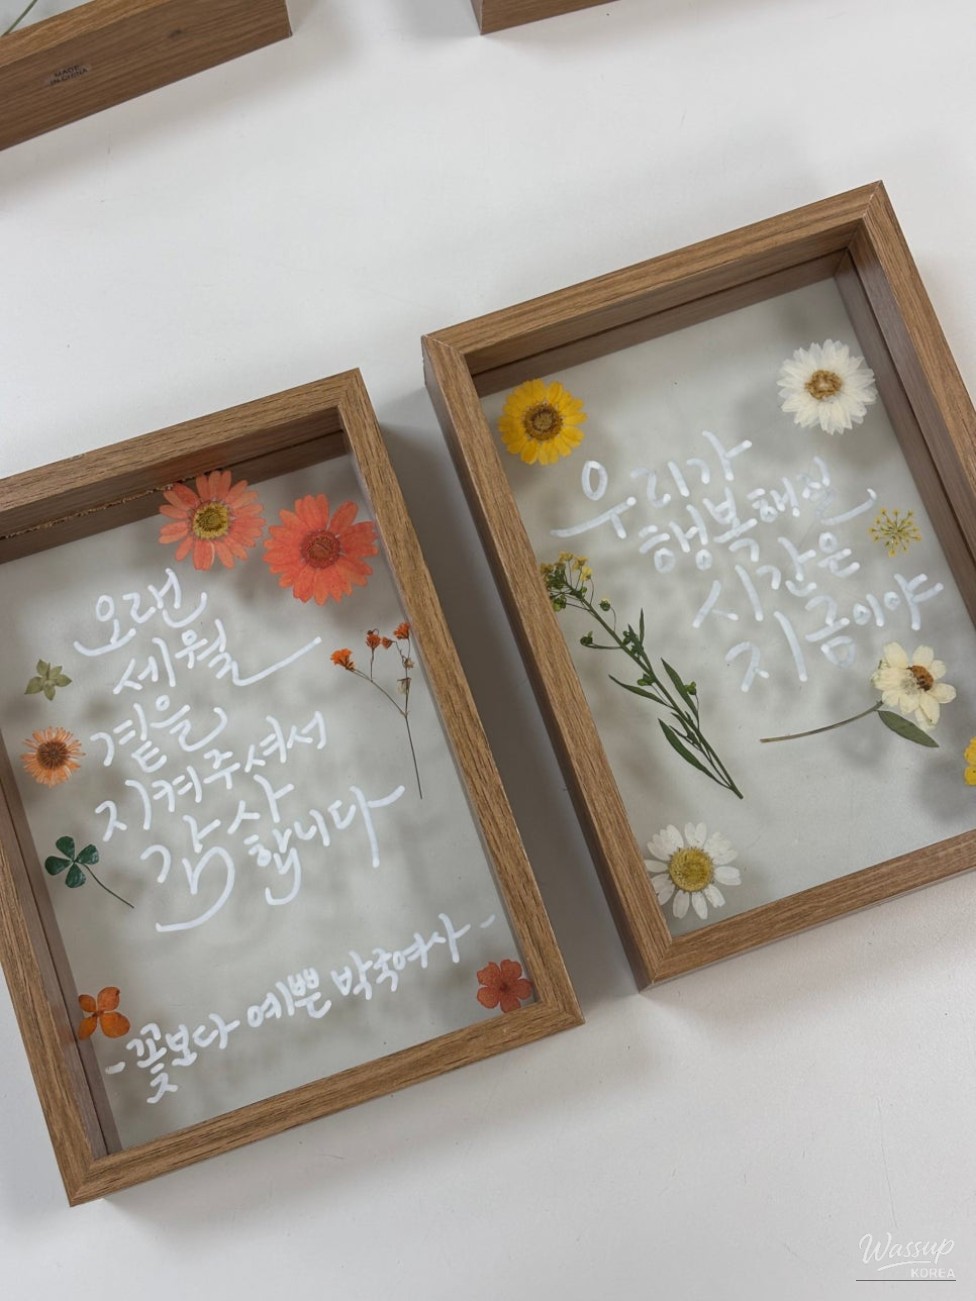 MADE
IN CHINA
오랜
세월
곁을
지켜주셔서
감사
합니다
-꽃보다 예쁜 박국여사-
우리가
행복해질
시간은
지금이야
Wassup
KOREA